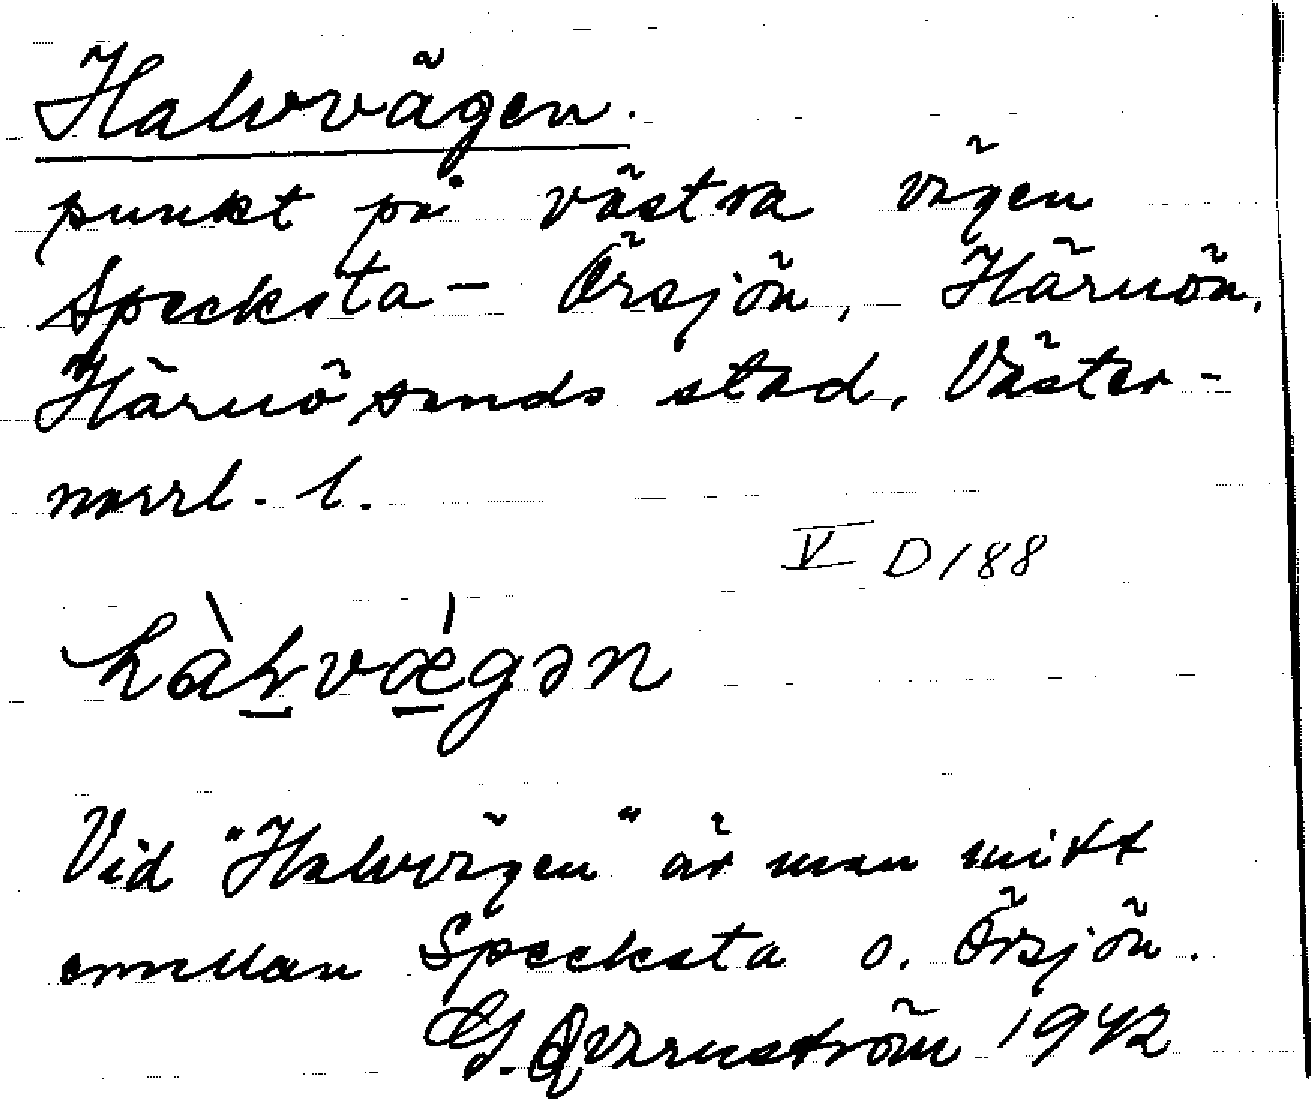 Halvvägen.
punkt på västra vägen
Specksta - Örsjön, Härnön,
Härnösands stad, Väster-
norrl. l.
V D 188
hàlvvǽgən
Vid "Halvvägen" är man mitt
emellan Specksta o. Örsjön.
G. Qvarnström 1942